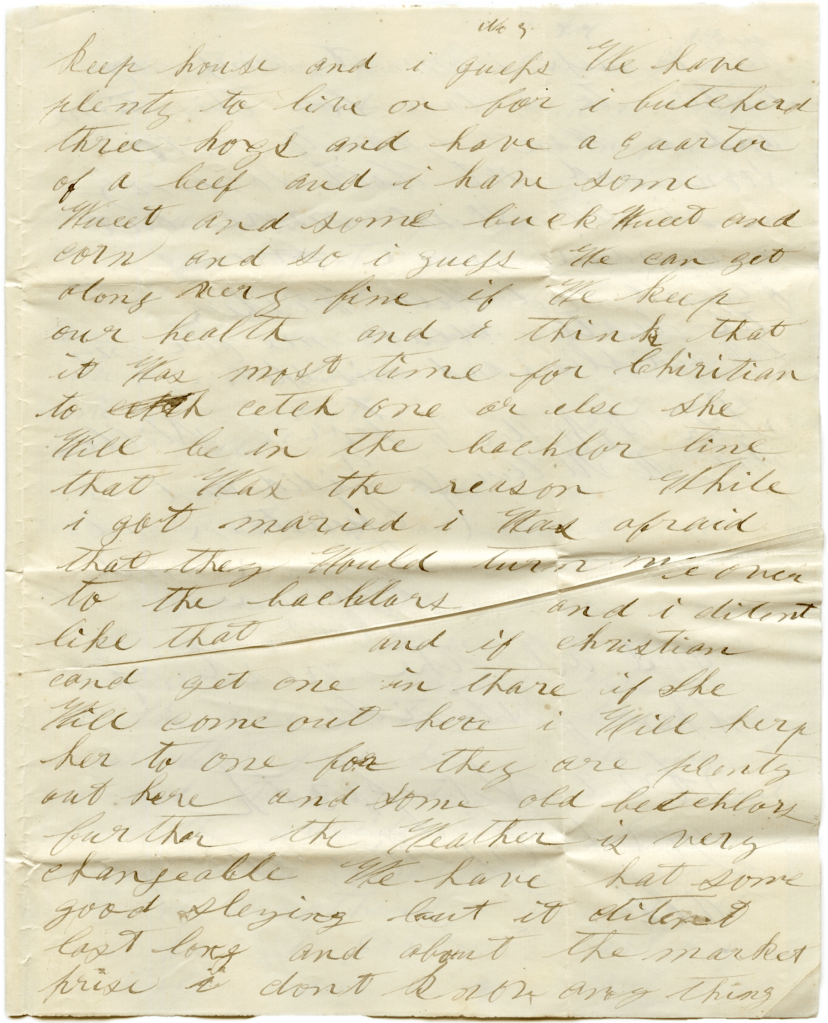 No 3
keep house and i guess We have
plenty to live on for i butcherd
three hogs and have a quarter
of a beef and i have some
Wueet and some buck Wueet and
corn and so i guess We can get
along very fine if We keep
our health and i think that
it Was most time for Chiritian
to cetch one or else she
Will be in the bachlor line
that Was the reason While
i got maried i Was afraid
that they Would turn me over
to the bachlars and i ditent
like that and if christian
cand get one in thare if She
Will come out here i Will herp
her to one for they are plenty
out here and some old betchlors
further the Weather is very
changeable We have hat some
good sleying but it ditent
last long and about the market
prise i dont know any thing